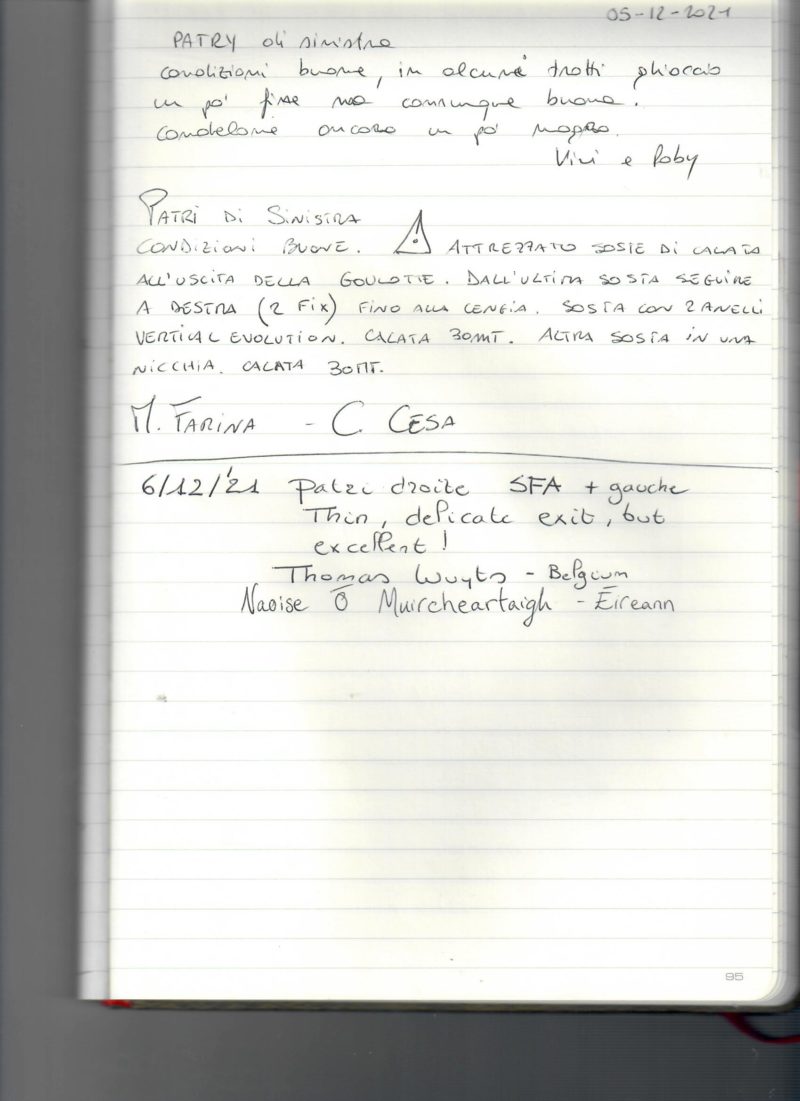 05-12-2021
PATRY di sinistra
condizioni buone, in alcuni tratti ghiaccio
un po' fine ma comunque buone.
Candelone ancora un po' magro.
Vivi e Roby
PATRI DI SINISTRA
CONDIZIONI BUONE. ATTREZZATO SOSTE DI CALATA
ALL'USCITA DELLA GOULOTTE. DALL'ULTIMA SOSTA SEGUIRE
A DESTRA (2 FIX) FINO ALLA CENGIA. SOSTA CON 2 ANELLI
VERTICAL EVOLUTION. CALATA 30MT. ALTRA SOSTA IN UNA
NICCHIA. CALATA 30MT.
M. FARINA - C. CESA
6/12/'21 Patri droite SFA + gauche
Thin, delicate exit, but
excellent!
Thomas Wuyts - Belgium
Naoise Ó Muircheartaigh - Éireann
95